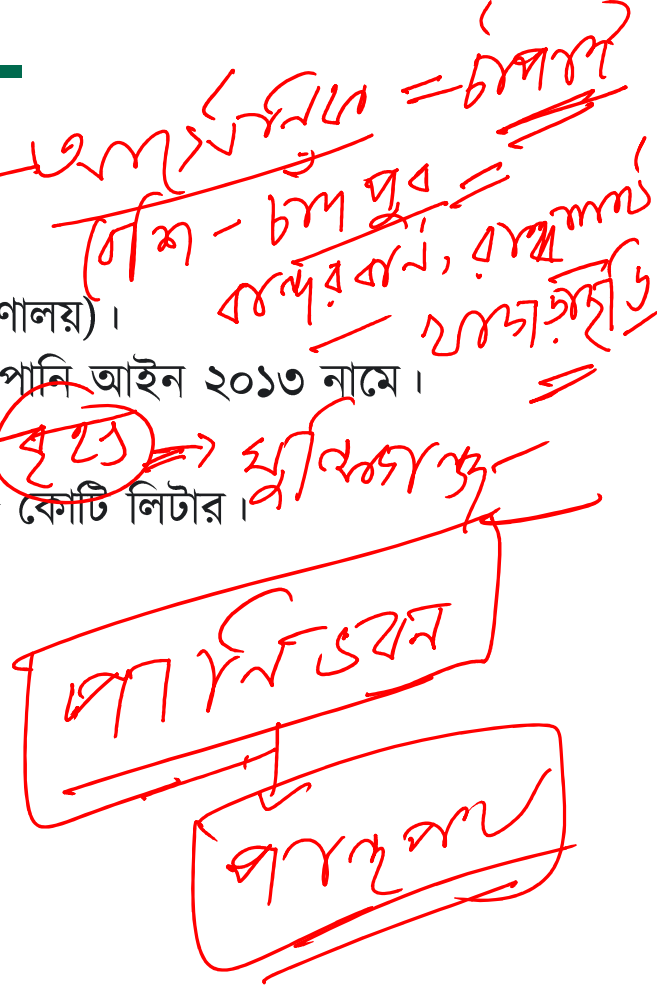 আর্সেনিক = চাঁপাই
বেশি - চাঁদপুর =
বান্দরবান, রাঙ্গামাটি
খাগড়াছড়ি
ণালয়)।
পানি আইন ২০১৩ নামে।
বৃহৎ => মুন্সিগঞ্জ -
কোটি লিটার।
পানি ভবন
পান্থপথ